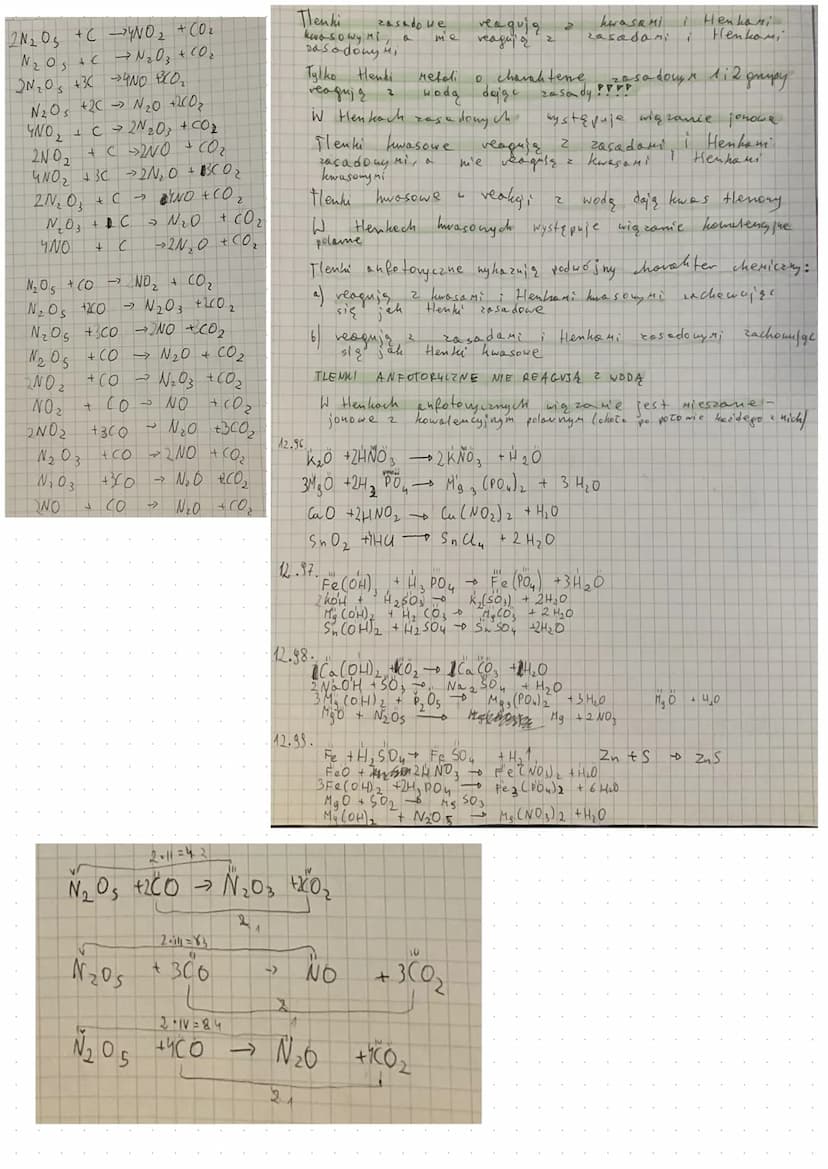 2N₂O₅ + C → 4NO₂ + CO₂
N₂O₅ + C → N₂O₃ + CO₂
2N₂O₅ + 3C → 4NO + 3CO₂
N₂O₅ + 2C → N₂O + 2CO₂
4NO₂ + C → 2N₂O₃ + CO₂
2NO₂ + C → 2NO + CO₂
4NO₂ + 3C → 2N₂O + 3CO₂
2N₂O₃ + C → 4NO + CO₂
N₂O₃ + C → N₂O + CO₂
4NO + C → 2N₂O + CO₂
N₂O₅ + CO → NO₂ + CO₂
N₂O₅ + 2CO → N₂O₃ + 2CO₂
N₂O₅ + 3CO → 2NO + 3CO₂
N₂O₅ + CO → N₂O + CO₂
2NO₂ + CO → N₂O₃ + CO₂
NO₂ + CO → NO + CO₂
2NO₂ + 3CO → N₂O + 3CO₂
N₂O₃ + CO → 2NO + CO₂
N₂O₃ + 3CO → N₂O + 2CO₂
2NO + CO → N₂O + CO₂
Tlenki zasadowe reagują z kwasami i tlenkami
kwasowymi, a nie reagują z zasadami i tlenkami
zasadowymi
Tylko tlenki metali o charakterze zasadowym 1 i 2 grupy
reagują z wodą dając zasady!!!!
W tlenkach zasadowych występuje wiązanie jonowe
Tlenki kwasowe reagują z zasadami i tlenkami
zasadowymi, a nie reagują z kwasami i tlenkami
kwasowymi
Tlenki kwasowe w reakcji z wodą dają kwas tlenowy
W tlenkach kwasowych występuje wiązanie kowalencyjne
polarne
Tlenki amfoteryczne wykazują podwójny charakter chemiczny:
a) reagują z kwasami i tlenkami kwasowymi zachowując
się jak tlenki zasadowe
b) reagują z zasadami i tlenkami zasadowymi zachowując
się jak tlenki kwasowe
TLENKI AMFOTERYCZNE NIE REAGUJĄ Z WODĄ
W tlenkach amfoterycznych wiązanie jest mieszane -
jonowe z kowalencyjnym polarnym (około po połowie każdego z nich)
12.96
K₂O + 2HNO₃ → 2KNO₃ + H₂O
3MgO + 2H₃PO₄ → Mg₃(PO₄)₂ + 3H₂O
CuO + 2HNO₂ → Cu(NO₂)₂ + H₂O
SnO₂ + 4HCl → SnCl₄ + 2H₂O
12.97.
Fe(OH)₃ + H₃PO₄ → Fe(PO₄) + 3H₂O
2KOH + H₂SO₃ → K₂(SO₃) + 2H₂O
Mg(OH)₂ + H₂CO₃ → MgCO₃ + 2H₂O
Sn(OH)₂ + H₂SO₄ → SnSO₄ + 2H₂O
12.98.
Ca(OH)₂ + CO₂ → CaCO₃ + H₂O
2NaOH + SO₃ → Na₂SO₄ + H₂O
3Mg(OH)₂ + P₂O₅ → Mg₃(PO₄)₂ + 3H₂O MgO + H₂O
MgO + N₂O₅ → Mg + 2NO₃
12.99.
Fe + H₂SO₄ → FeSO₄ + H₂↑ Zn + S → ZnS
FeO + 2HNO₃ → Fe(NO₃)₂ + H₂O
3Fe(OH)₂ + 2H₃PO₄ → Fe₃(PO₄)₂ + 6H₂O
MgO + SO₂ → MgSO₃
Mg(OH)₂ + N₂O₅ → Mg(NO₃)₂ + H₂O
2·II=4 2
N₂O₅ + 2CO → N₂O₃ + 2CO₂
2 1
2·III=6 3
N₂O₅ + 3CO → NO + 3CO₂
2 1
2·IV=8 4
N₂O₅ + 4CO → N₂O + 4CO₂
2 1